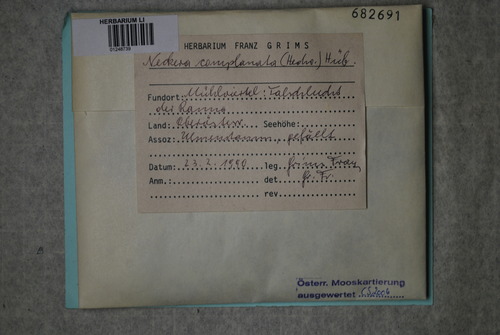 HERBARIUM LI
682691
HERBARIUM FRANZ GRIMS
Neckera complanata (Hedw.) Hüb.
Fundort: Mühlviertel: Talschlucht
der Ranna
Land: Oberösterr. Seehöhe:
Assoz: Ulmenstamm, gefällt
Datum: 23.2.1980 leg. Grims Franz
Anm.: det. G. Fr.
rev.
Österr. Mooskartierung
ausgewertet